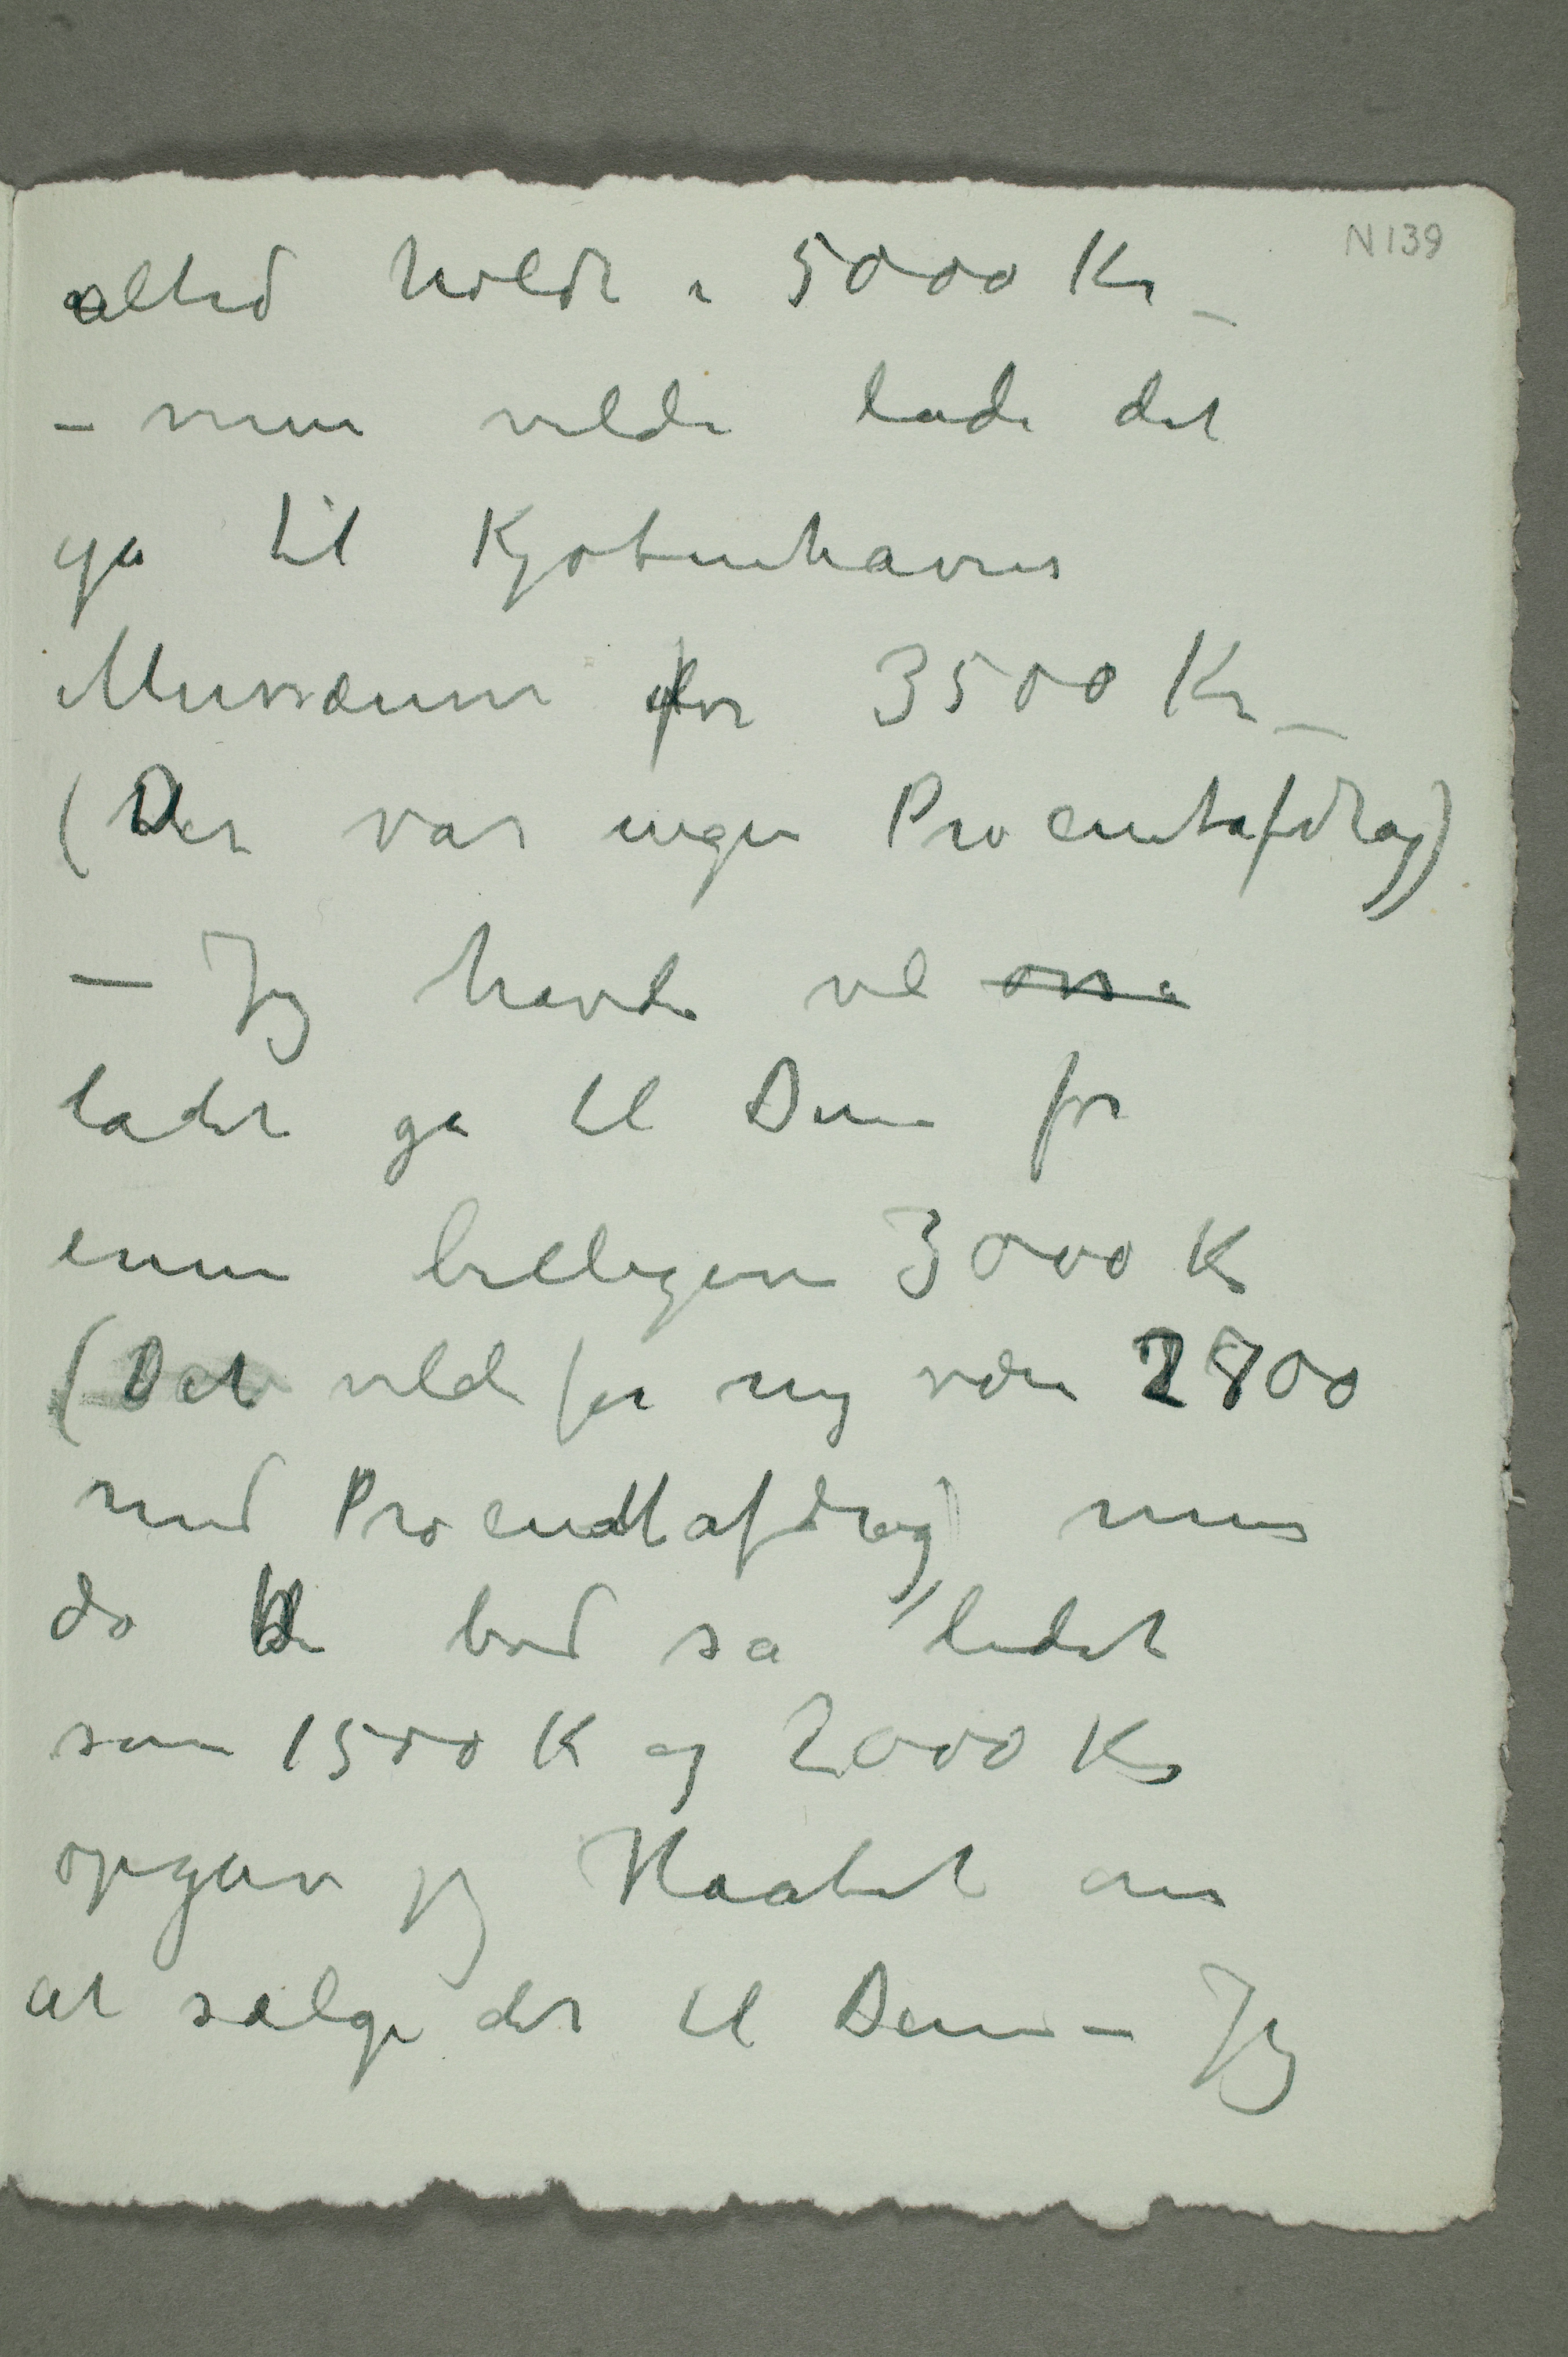 N139
altid holdt i 5000 Kr –
– men vilde lade det
gå til Kjøbenhavns
Mussæum for 3500 Kr –
(Der var ingen Procentafdrag)
– Jeg havde vel osså
ladet gå til Dem for
ennu billigere 3000 K
(Det vilde for mig være 2700
med Procentafdrag) men
da De bød så lidet
som 1500 K og 2000 Kr
opgav jeg Haabet om
at sælge det til Dem – Jeg